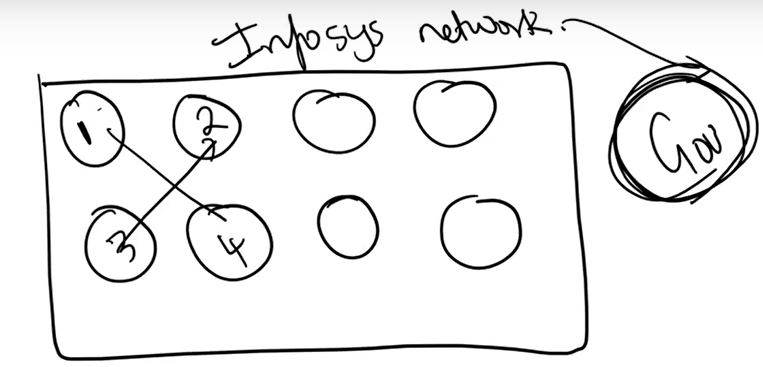 Infosys network.
1 2
Gov
3 4